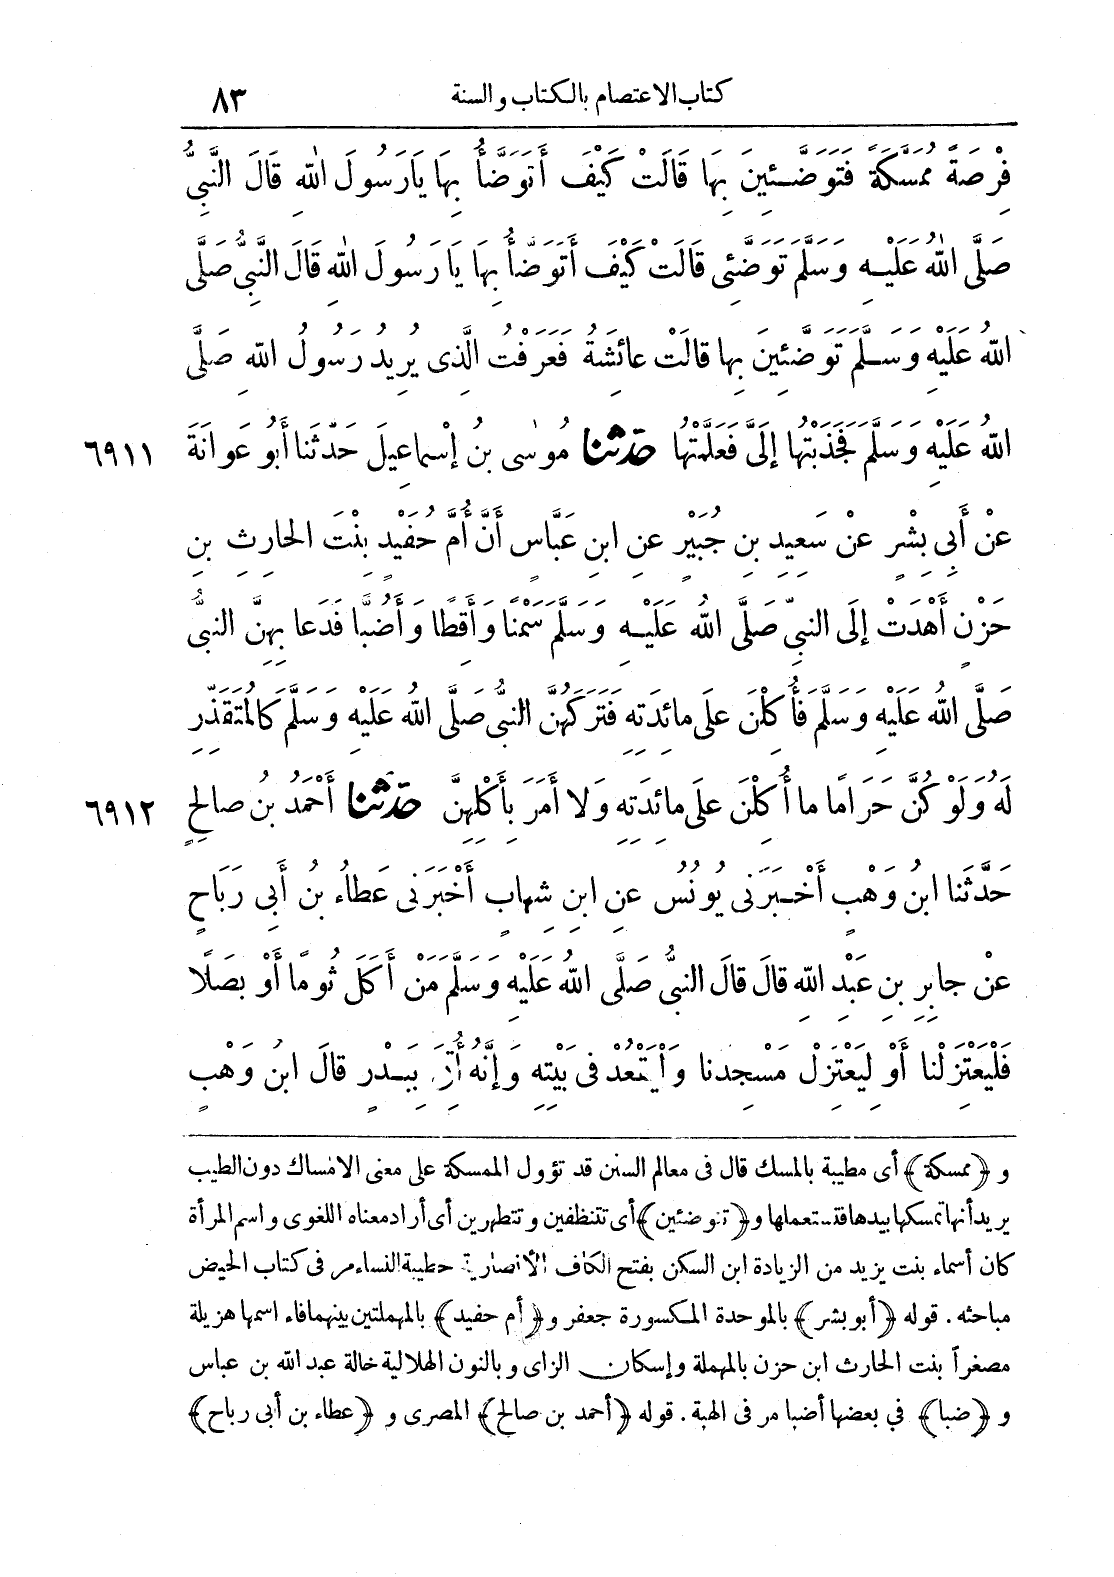 كتاب الاعتصام بالكتاب والسنة ٨٣
فِرْصَةً مُمَسَّكَةً فَتَوَضَّئِينَ بِهَا قَالَتْ كَيْفَ أَتَوَضَّأُ بِهَا يَا رَسُولَ اللهِ قَالَ النَّبِيُّ
صَلَّى اللهُ عَلَيْهِ وَسَلَّمَ تَوَضَّئِى قَالَتْ كَيْفَ أَتَوَضَّأُ بِهَا يَا رَسُولَ اللهِ قَالَ النَّبِىُّ صَلَّى
اللهُ عَلَيْهِ وَسَلَّمَ تَوَضَّئِينَ بِها قالَتْ عائِشَةُ فَعَرَفْتُ الَّذِى يُرِيدُ رَسُولُ اللهِ صَلَّى
اللهُ عَلَيْهِ وَسَلَّمَ فَجَذَبْتُها إِلَىَّ فَعَلَّمْتُها حَدَّثَنا مُوسٰى بنُ إِسْماعِيلَ حَدَّثَنا أَبُو عَوانَةَ ٦٩١١
عَنْ أَبِى بِشْرٍ عَنْ سَعِيدِ بنِ جُبَيْرٍ عَنِ ابنِ عَبَّاسٍ أَنَّ أُمَّ حُفَيْدٍ بِنْتَ الحارِثِ بنِ
حَزْنٍ أَهْدَتْ إِلَى النبيِّ صَلَّى اللهُ عَلَيْهِ وَسَلَّمَ سَمْنًا وَأَقِطًا وَأَضُبًّا فَدَعا بِهِنَّ النبىُّ
صَلَّى اللهُ عَلَيْهِ وَسَلَّمَ فَأُكِلْنَ عَلَى مائِدَتِهِ فَتَرَكَهُنَّ النبىُّ صَلَّى اللهُ عَلَيْهِ وَسَلَّمَ كَالمُتَقَذِّرِ
لَهُ وَلَوْ كُنَّ حَرَامًا ما أُكِلْنَ عَلَى مائِدَتِهِ وَلا أَمَرَ بِأَكْلِهِنَّ حَدَّثَنا أَحْمَدُ بنُ صالِحٍ ٦٩١٢
حَدَّثَنا ابنُ وَهْبٍ أَخْبَرَنى يُونُسُ عَنِ ابنِ شِهابٍ أَخْبَرَنى عَطاءُ بنُ أَبِى رَبَاحٍ
عَنْ جابِرِ بنِ عَبْدِ اللهِ قالَ قالَ النبىُّ صَلَّى اللهُ عَلَيْهِ وَسَلَّمَ مَنْ أَكَلَ ثُومًا أَوْ بَصَلًا
فَلْيَعْتَزِلْنا أَوْ لِيَعْتَزِلْ مَسْجِدَنا وَلْيَقْعُدْ فى بَيْتِهِ وَإِنَّهُ أُتِىَ بِبَدْرٍ قالَ ابنُ وَهْبٍ
و ﴿ممسكة﴾ أى مطيبة بالمسك قال فى معالم السنن قد تؤول الممسكة على معنى الامساك دون الطيب
يريد أنها تمسكها بيدها فتستعملها و﴿توضئين﴾ أى تتنظفين وتتطهرين أى أراد معناه اللغوى واسم المرأة
كان أسماء بنت يزيد من الزيادة ابن السكن بفتح الكاف الأنصارية خطيبة النساء مر فى كتاب الحيض
مباحثه. قوله ﴿أبو بشر﴾ بالموحدة المكسورة جعفر و﴿أم حفيد﴾ بالمهملتين بينهما فاء اسمها هزيلة
مصغراً بنت الحارث ابن حزن بالمهملة وإسكان الزاى وبالنون الهلالية خالة عبد الله بن عباس
و ﴿ضبا﴾ في بعضها أضبا مر فى الهبة. قوله ﴿أحمد بن صالح﴾ المصرى و ﴿عطاء بن أبى رباح﴾